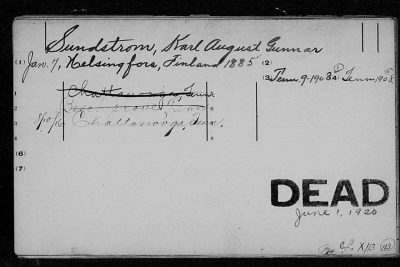 Sundstrom, Karl August Gunnar
(1) Jan. 7, Helsingfors, Finland 1885 (2)
(3) Tenn. 9-1908 (4) Tenn 1908
Chattanooga, Tenn
Chattanooga, Tenn.
(6)
(7)
DEAD
June 1, 1920
X/13 (13)